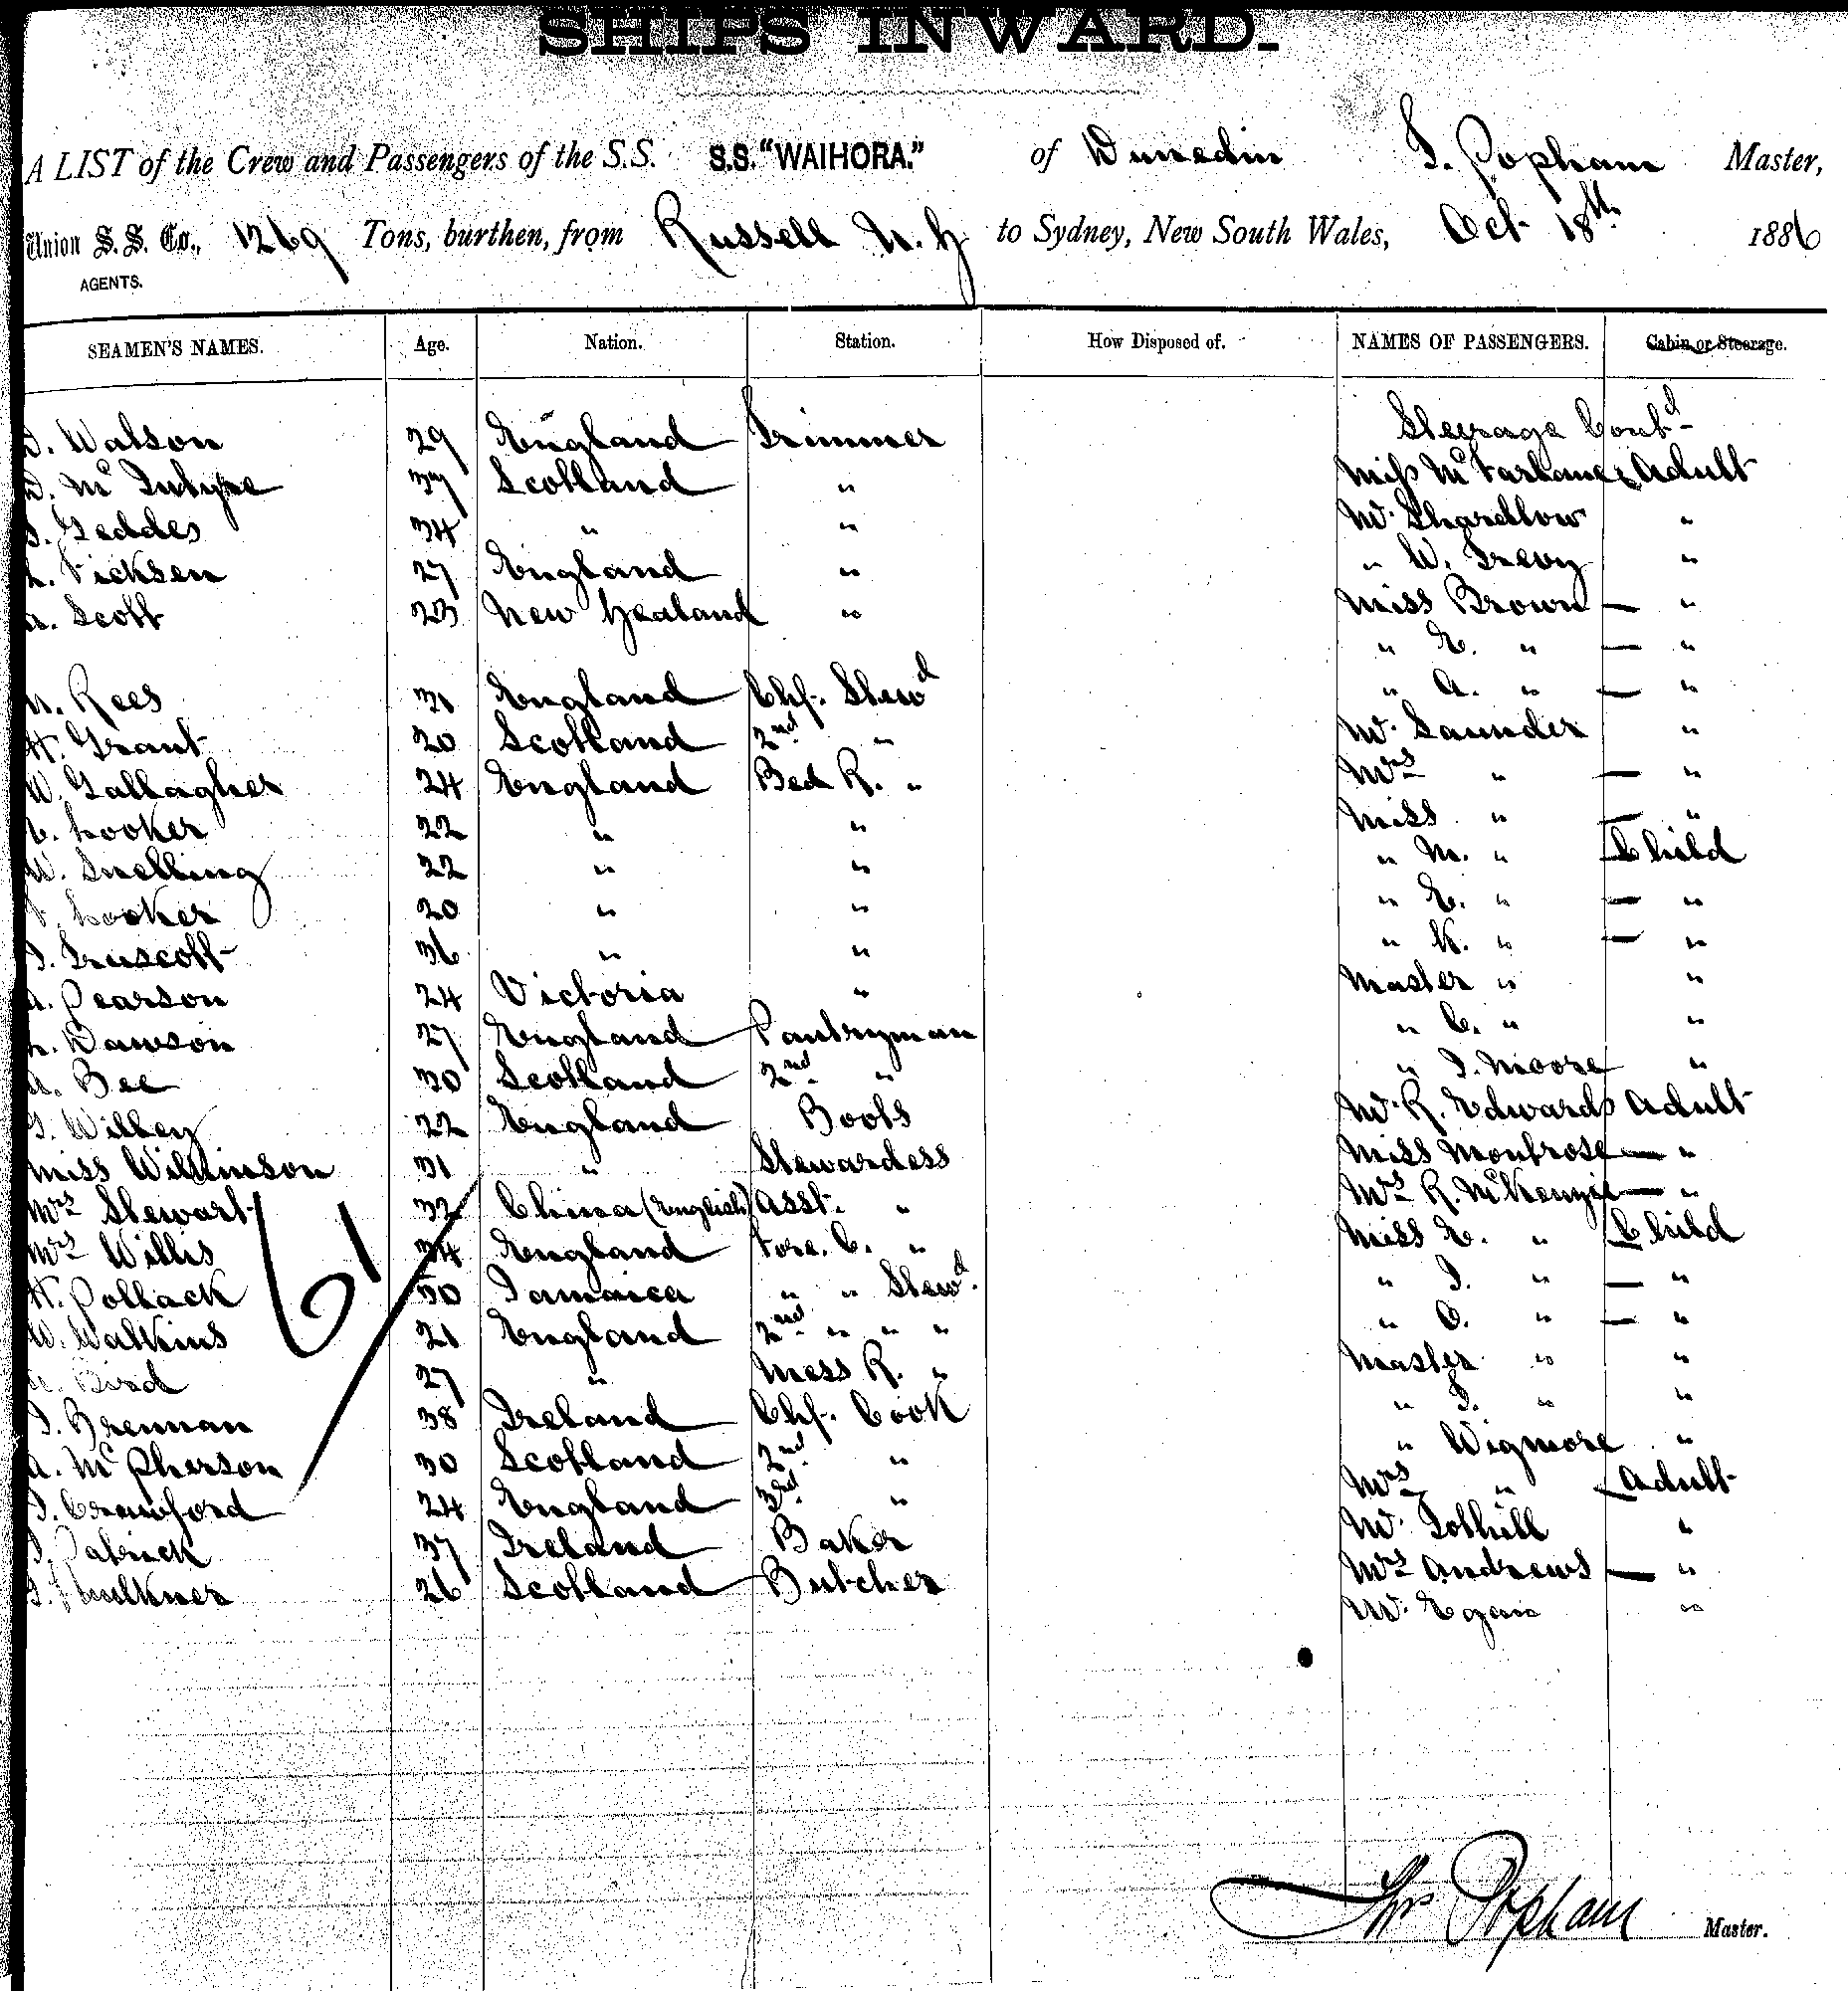 SHIPS INWARD.
A LIST of the Crew and Passengers of the S.S. S.S. "WAIHORA." of Dunedin T. Popham Master,
Union S. S. Co., 1269 Tons, burthen, from Russell N. Z to Sydney, New South Wales, Oct 18th 1886
AGENTS.
SEAMEN'S NAMES. Age. Nation. Station. How Disposed of. NAMES OF PASSENGERS. Cabin or Steerage.
Steerage Contd
Watson 29 England Trimmer
D. McIntyre 37 Scotland " Miss McFarlane Adult
Geddes 34 " " Mr. Shardlow "
Ficksen 27 England " " W. Trevy "
A. Scott 23 New Zealand " Miss Brown — "
" E. " — "
Rees 31 England Chf. Stewd " A. " — "
H. Grant 20 Scotland 2nd " Mr. Saunder "
W. Gallagher 24 England Bed R. " Mrs " — "
C. Looker 22 " " Miss " — "
W. Snelling 22 " " " M. " Child
Looker 20 " " " E. " — "
Truscott 36 " " " K. " — "
A. Pearson 24 Victoria " Master " "
Dawson 27 England Pantryman " C. " "
A. Bee 30 Scotland 2nd " " J. Moore "
Willey 22 England Boots Mr. R. Edwards Adult
Miss Wilkinson 31 " Stewardess Miss Montrose — "
Mrs Stewart 32 China (English) Asst. " Mrs R. McKenzie — "
Mrs Willis 34 England Fore. C. " Miss E. " Child
H. Pollack 30 Jamaica " " Stewd. " J. " — "
W. Watkins 21 England 2nd " " " " O. " — "
Bird 27 " Mess R. " Master " "
J. Brennan 38 Ireland Chf. Cook " J. " "
A. McPherson 30 Scotland 2nd " " Wigmore "
J. Crawford 24 England 3rd " Mrs " Adult
Patrick 37 Ireland Baker Mr. Tothill "
Faulkner 26 Scotland Butcher Mrs Andrews — "
Mr. Egan "
61
Thos Popham Master.